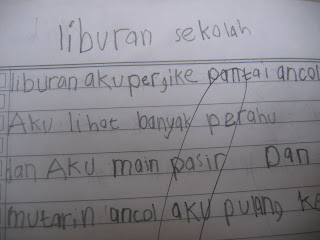 liburan sekolah
liburan aku pergike pantai ancol
Aku lihat banyak perahu
dan AKU main pasir Dan
mutarin ancol aku pulang ke